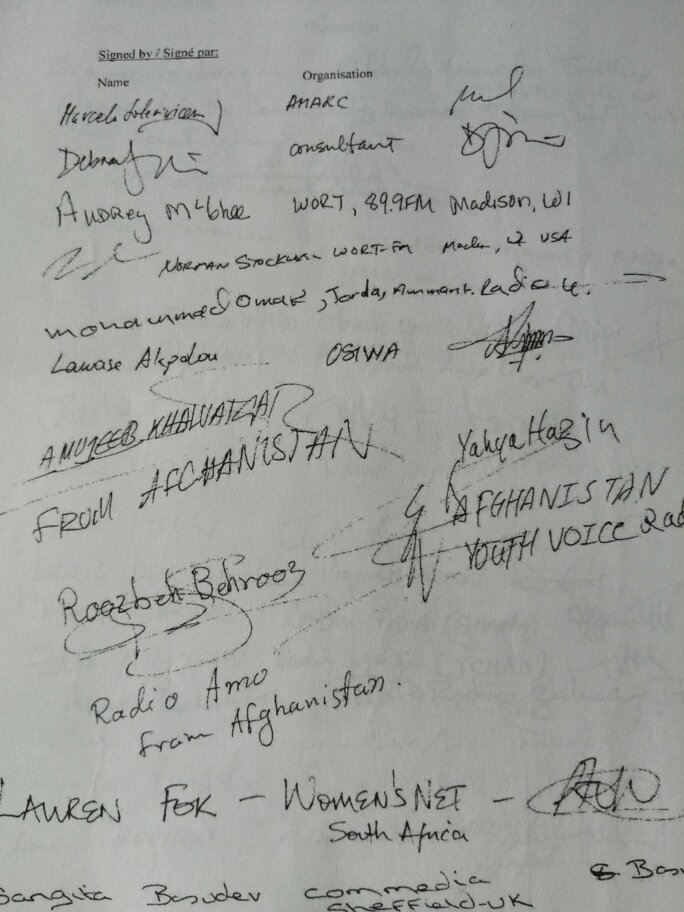 Signed by / Signé par:
Name Organisation
AMARC
Debra consultant
AUDREY McGhee WORT, 89.9FM Madison, WI
NORMAN WORT-FM USA
mohammed omar, Jorda, Radio
Lawase Akpolou OSIWA
AMUJEEB KHALVATGAR
FROM AFGHANISTAN
Yahya Hazin
AFGHANISTAN
YOUTH VOICE Rad
Roozbeh Behrooz
Radio Amo
from Afghanistan.
LAUREN FOK – WOMEN'SNET –
South Africa
Sangita Basudev commedia
Sheffield-UK